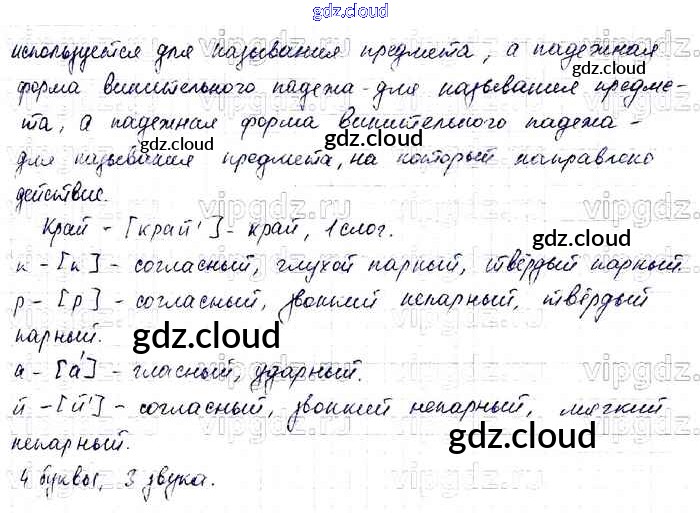 gdz.cloud
используется для называния предмета, а падежная
форма винительного падежа-для называния предме-
та, а падежная форма винительного падежа-
для называния предмета, на который направлено
действие.
Край - [край'] - край, 1 слог.
к - [к] - согласный, глухой парный, твёрдый парный.
р - [р] - согласный, звонкий непарный, твёрдый
парный.
а - [а́] - гласный, ударный.
й - [й'] - согласный, звонкий непарный, мягкий
непарный.
4 буквы, 3 звука.
gdz.cloud
gdz.cloud
gdz.cloud
gdz.cloud
gdz.cloud
gdz.cloud